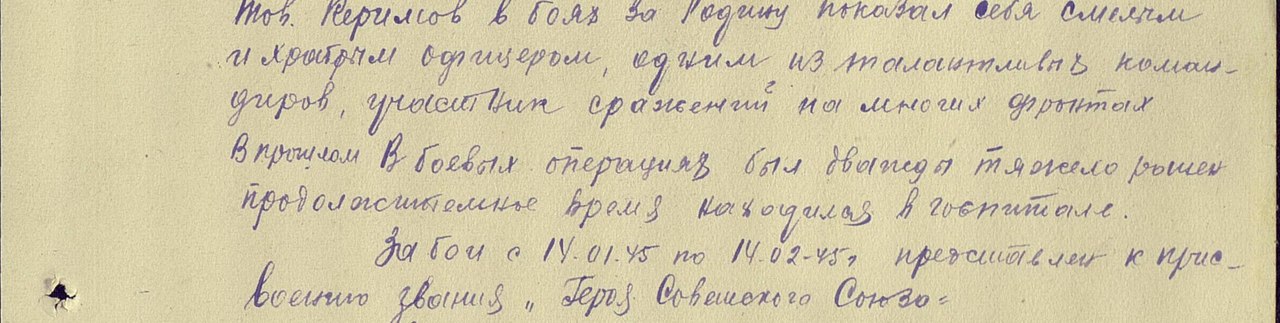 тов. Керимов в боях за Родину показал себя смелым
и храбрым офицером, одним из талантливых коман-
диров, участник сражений на многих фронтах
В прошлом в боевых операциях был дважды тяжело ранен
продолжительное время находился в госпитале.
За бои с 14.01.45 по 14.02.45г представлен к прис-
воению звания „Героя Советского Союза=